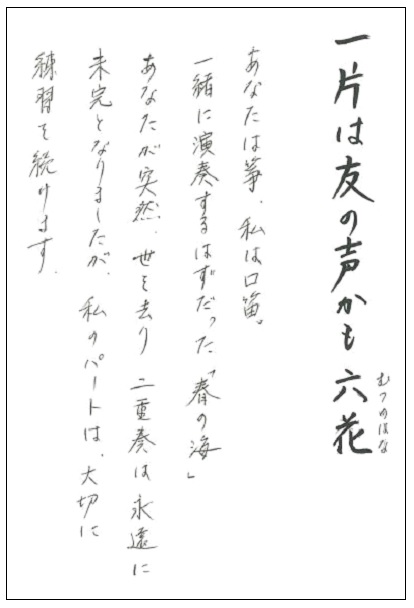 一片は友の声かも六花
むつのはな
あなたは箏、私は口笛。
一緒に演奏するはずだった「春の海」
あなたが突然、世を去り 二重奏は永遠に
未完となりましたが、私のパートは、大切に
練習を続けます。